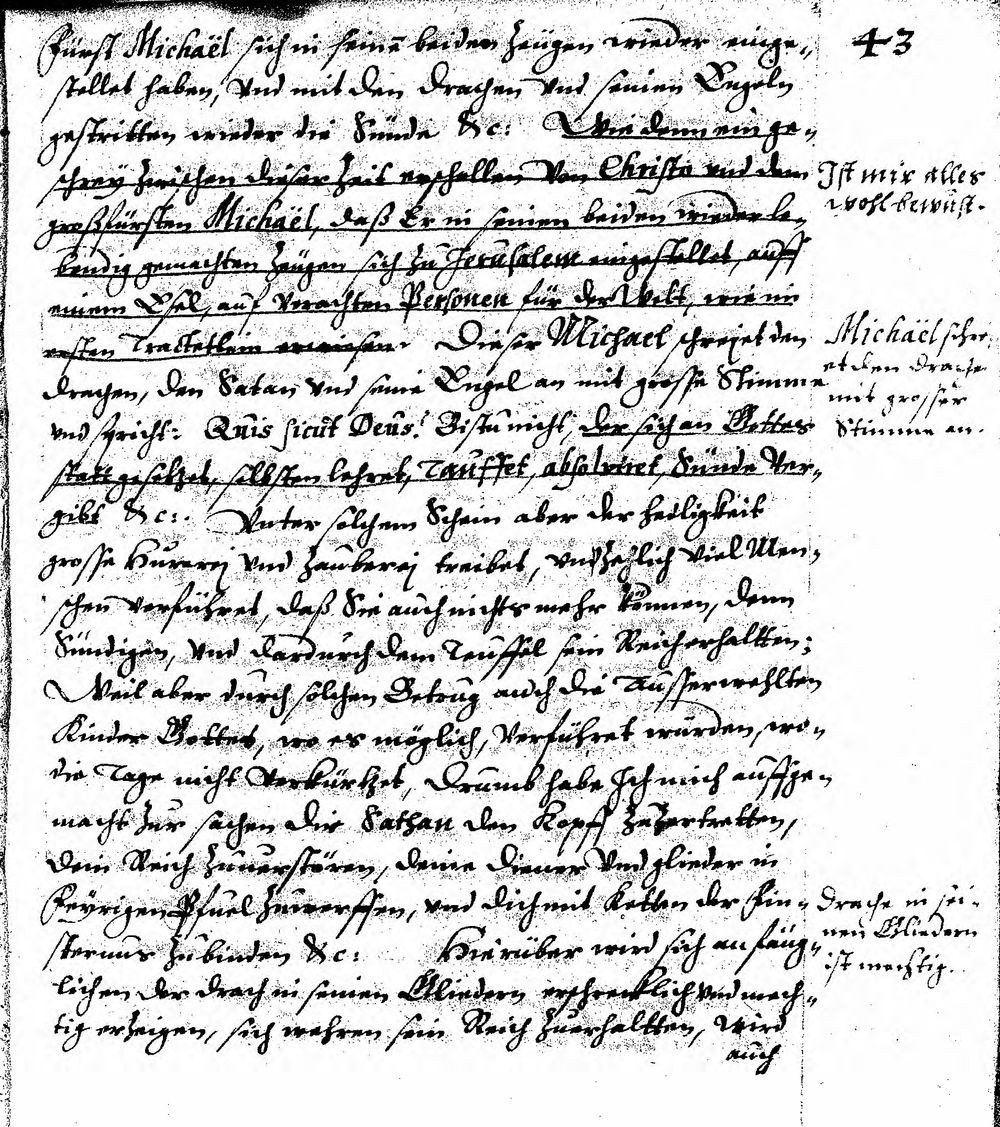 43
Fürst Michaël sich in seinē beiden Zeügen wieder einge-
stellet haben, Vnd mit den drachen Vnd seinen Engeln
gestritten wieder die Sünde &c: Wie denn ein ge-
schrey zwischen dieser Zeit erschallen Von Christo vnd dem
großfürsten Michaël, daß Er in seinen beiden wieder le-
bendig gemachten Zeügen sich zu Jerusalem eingestellet, auff
einem Esel, auf verachten Personen für der Welt, wie im
ersten Tractetlein erwiesen. Dieser Michael schreyet den
drachen, den Satan Vnd seine Engel an mit grosse Stimme
vnd spricht: Quis sicut Deus? Bistu nicht, der sich an Gottes
statt gesetzet, selbsten lehret, Tauffet, absolviret, Sünde Ver-
gibt &c:. Vnter solchem Schein aber der heiligkeit
grosse Hurerej Vnd Zauberej treibet, vnzehlich viel Men-
schen verführet, daß Sie auch nichts mehr können, denn
Sündigen, Vnd dardurch dem Teuffel sein Reich erhaltten;
Weil aber durch solchen Betrug auch die Ausserwehlten
Kinder Gottes, wo es möglich, Verführet würden, wo-
die Tage nicht Verkürtzet, Drumb habe Ich mich auffge-
macht zur sachen dir Sathan den Kopff zuzertretten,
dein Reich zuuerstören, deine diener Vnd glieder in
Feyrigen Pfuel zuwerffen, vnd dich mit Ketten der Fin-
sternus zu binden &c: Hierüber wird sich anfäng-
lichen der drach in seinen Gliedern erschrecklich vnd mech-
tig erzeigen, sich wehren sein Reich zuerhaltten, Wird
auch
Ist mir alles
wohl bewust.
Michäël schre-
et den drache
mit grosser
Stimme an.
Drache in sei-
nen Gliedern
ist mechtig.